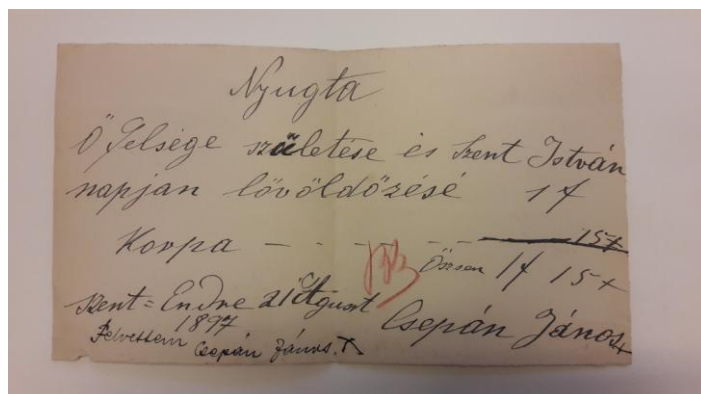 Nyugta
Ő Felsége születése és Szent István
napjan lövöldőzésé 1 f
Korpa - - - - - 15 x
Öszsen 1 f 15 x
Szent=Endre 21 Aguszt
1897 Csepán János x
Felvettem
Csepán János. X